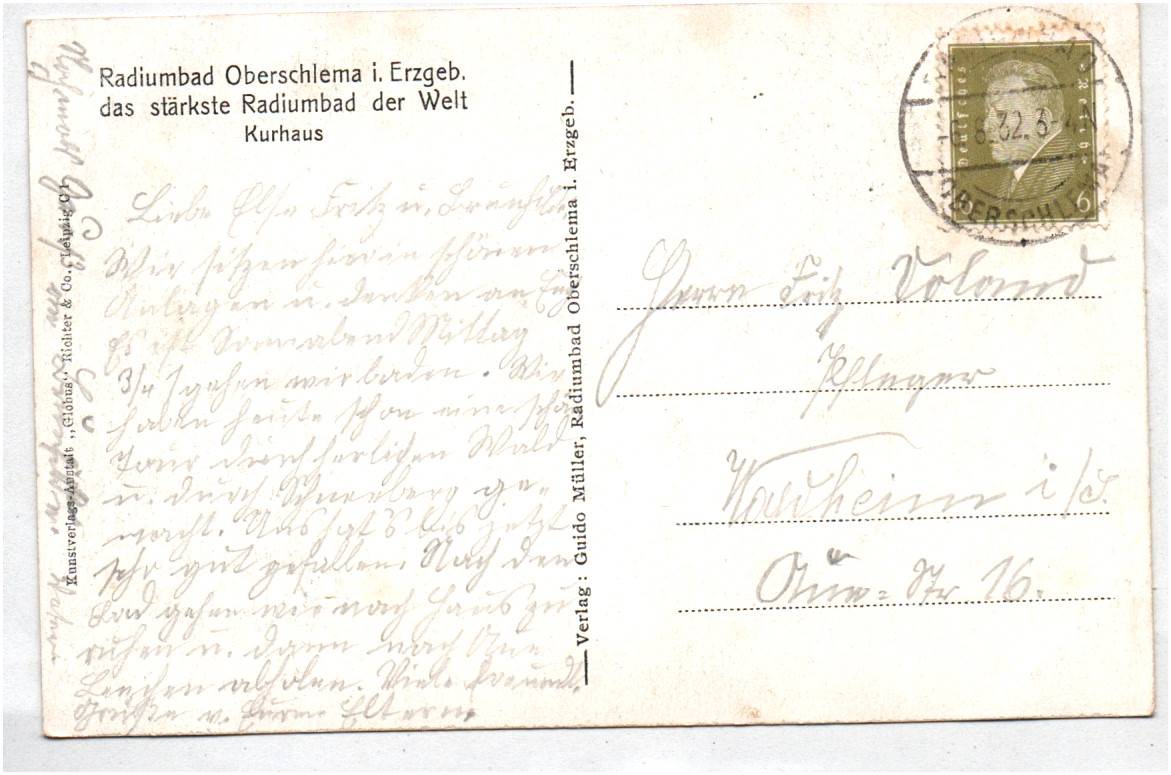 Radiumbad Oberschlema i. Erzgeb.
das stärkste Radiumbad der Welt
Kurhaus
Liebe Else Fritz u.
Wir sitzen hier in schönen
Anlagen u. denken an Euch
Es ist Sonnabend Mittag
3/4 1 gehen wir baden. Wir
haben heute schon eine schöne
Tour durch herlichen Wald
u. durch Schneeberg ge-
macht. Uns hat's bis jetzt
sehr gut gefallen. Nach dem
Bad gehen wir nach Haus zu
ruhen u. dann nach Aue
Lenchen abholen. Viele freundl.
Grüße v. Euren Eltern
Kunstverlags-Anstalt „Globus“ Richter & Co., Leipzig C1
Verlag: Guido Müller, Radiumbad Oberschlema i. Erzgeb.
Deutsches Reich
6 6
6.32. 3-4
OBERSCHLEMA
Herrn Fritz Voland
Pfleger
Waldheim i/S.
Aue-Str 16.